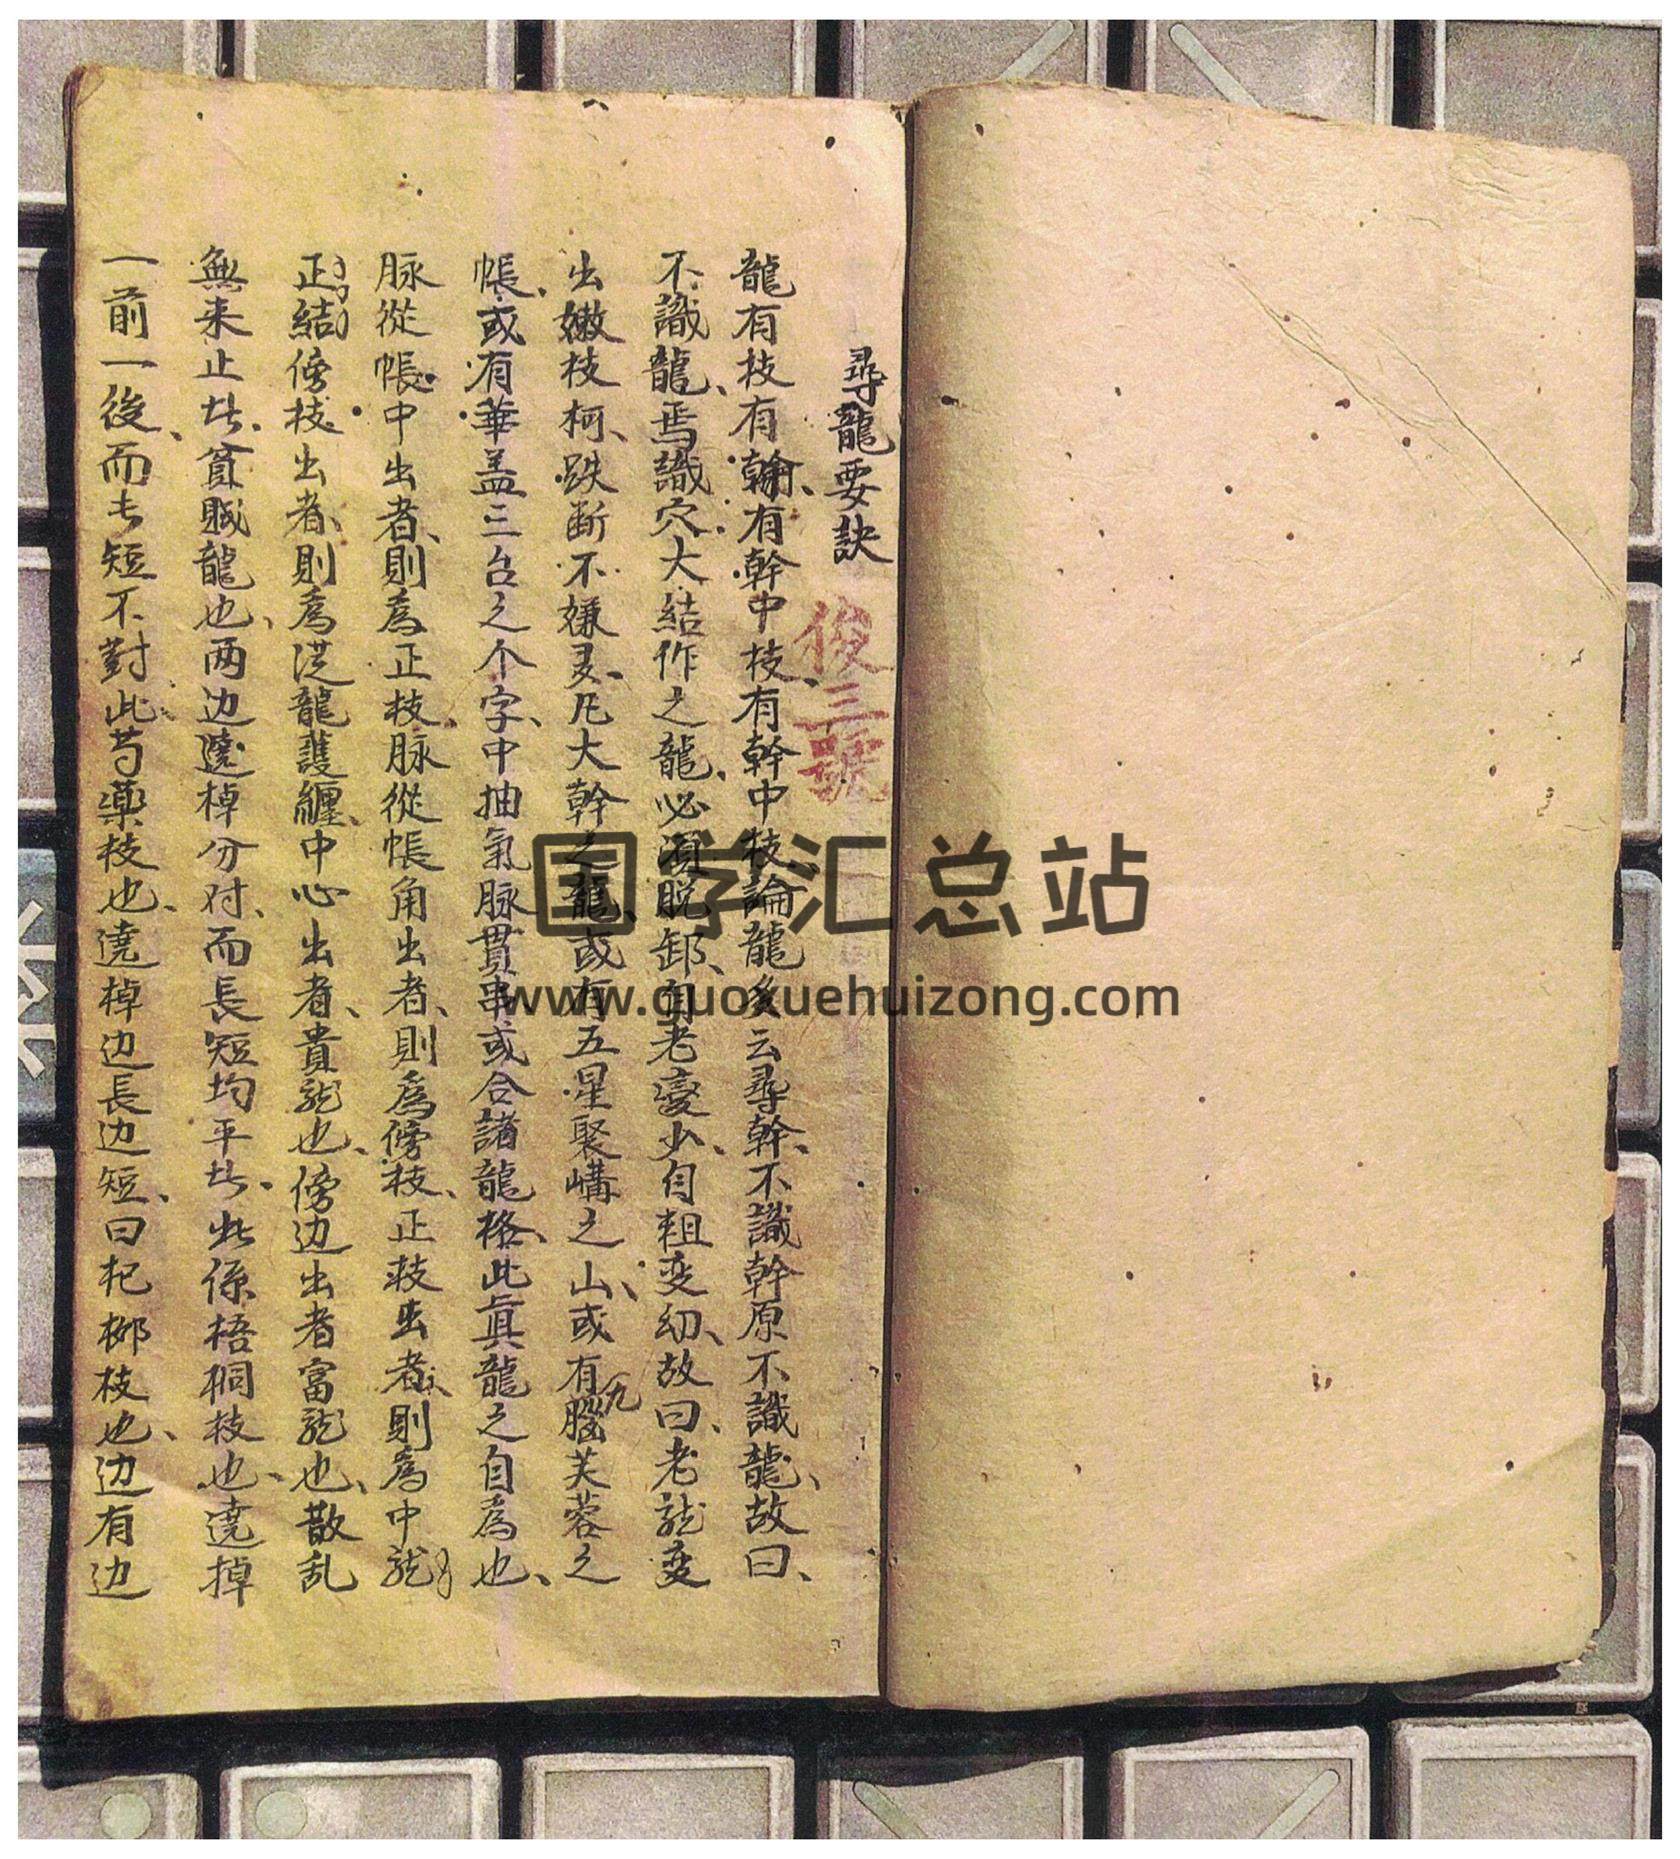 尋龍要訣
俊三號
龍有枝有幹、有幹中枝、有幹中枝論龍多云尋幹、不識幹原不識龍、故曰、
不識龍、焉識穴、大結作之龍、必須脱卸、自老變少、自粗变幼、故曰、老龍变
出嫩枝柯、跌断不嫌多、凡大幹之龍、或有五星聚構之山、或有九腦芙蓉之
帳、或有華盖三台之个字、中抽氣脉貫串或合諸龍格、此真龍之自為也、
脉從帳中出者、則為正枝、脉從帳角出者、則為傍枝、正枝出者、則為中龍
正結傍枝出者、則為從龍護纏、中心出者、貴龍也、傍边出者富龍也、散乱
無来止者、貧賎龍也、两边遶棹分对、而長短均平者、此係梧桐枝也、遶掉
一前一後、而長短不對、此芍藥枝也、遶棹边長边短、曰杞柳枝也、边有边
国学汇总站
www.guoxuehuizong.com